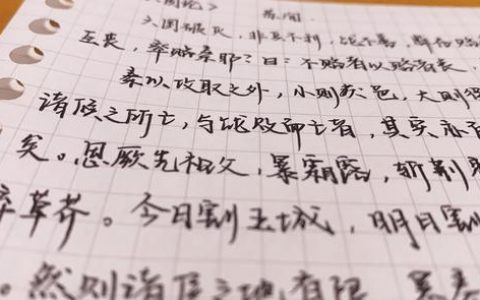 国论》 苏洵.
六国破灭，非兵不利，战不善，弊在赂
互丧，率赂秦耶？曰：不赂者以赂者丧，
秦以攻取之外，小则获邑，大则得
诸侯之所亡，与战败而亡者，其实亦
矣。思厥先祖父，暴霜露，斩荆
草芥。今日割五城，明日割
。然则诸侯之地有限，暴秦